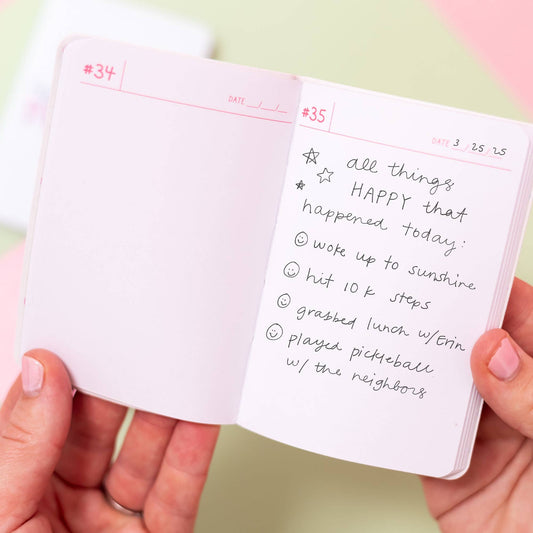 #34
DATE __/__/__
#35
DATE 3/25/25
all things
HAPPY that
happened today:
woke up to sunshine
hit 10k steps
grabbed lunch w/Erin
played pickleball
w/ the neighbors